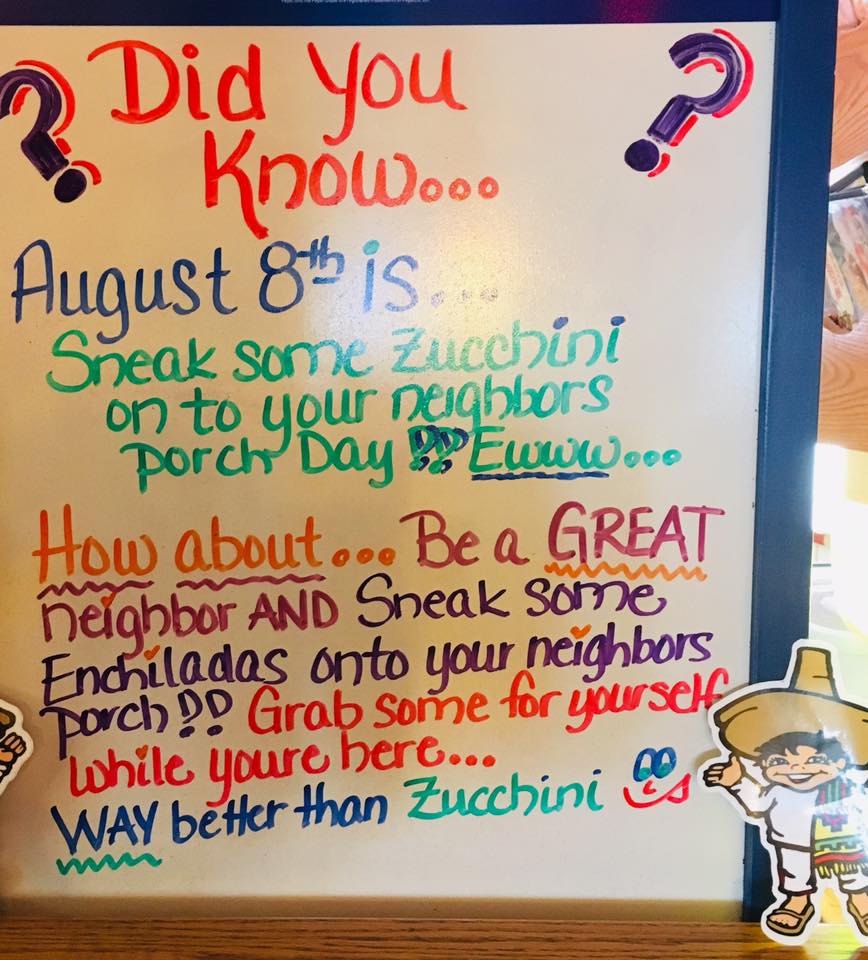 Did You
Know...
August 8th is...
Sneak some Zucchini
on to your neighbors
porch Day !!! Ewww...
How about... Be a GREAT
neighbor AND Sneak some
Enchiladas onto your neighbors
porch!! Grab some for yourself
while youre here...
WAY better than Zucchini